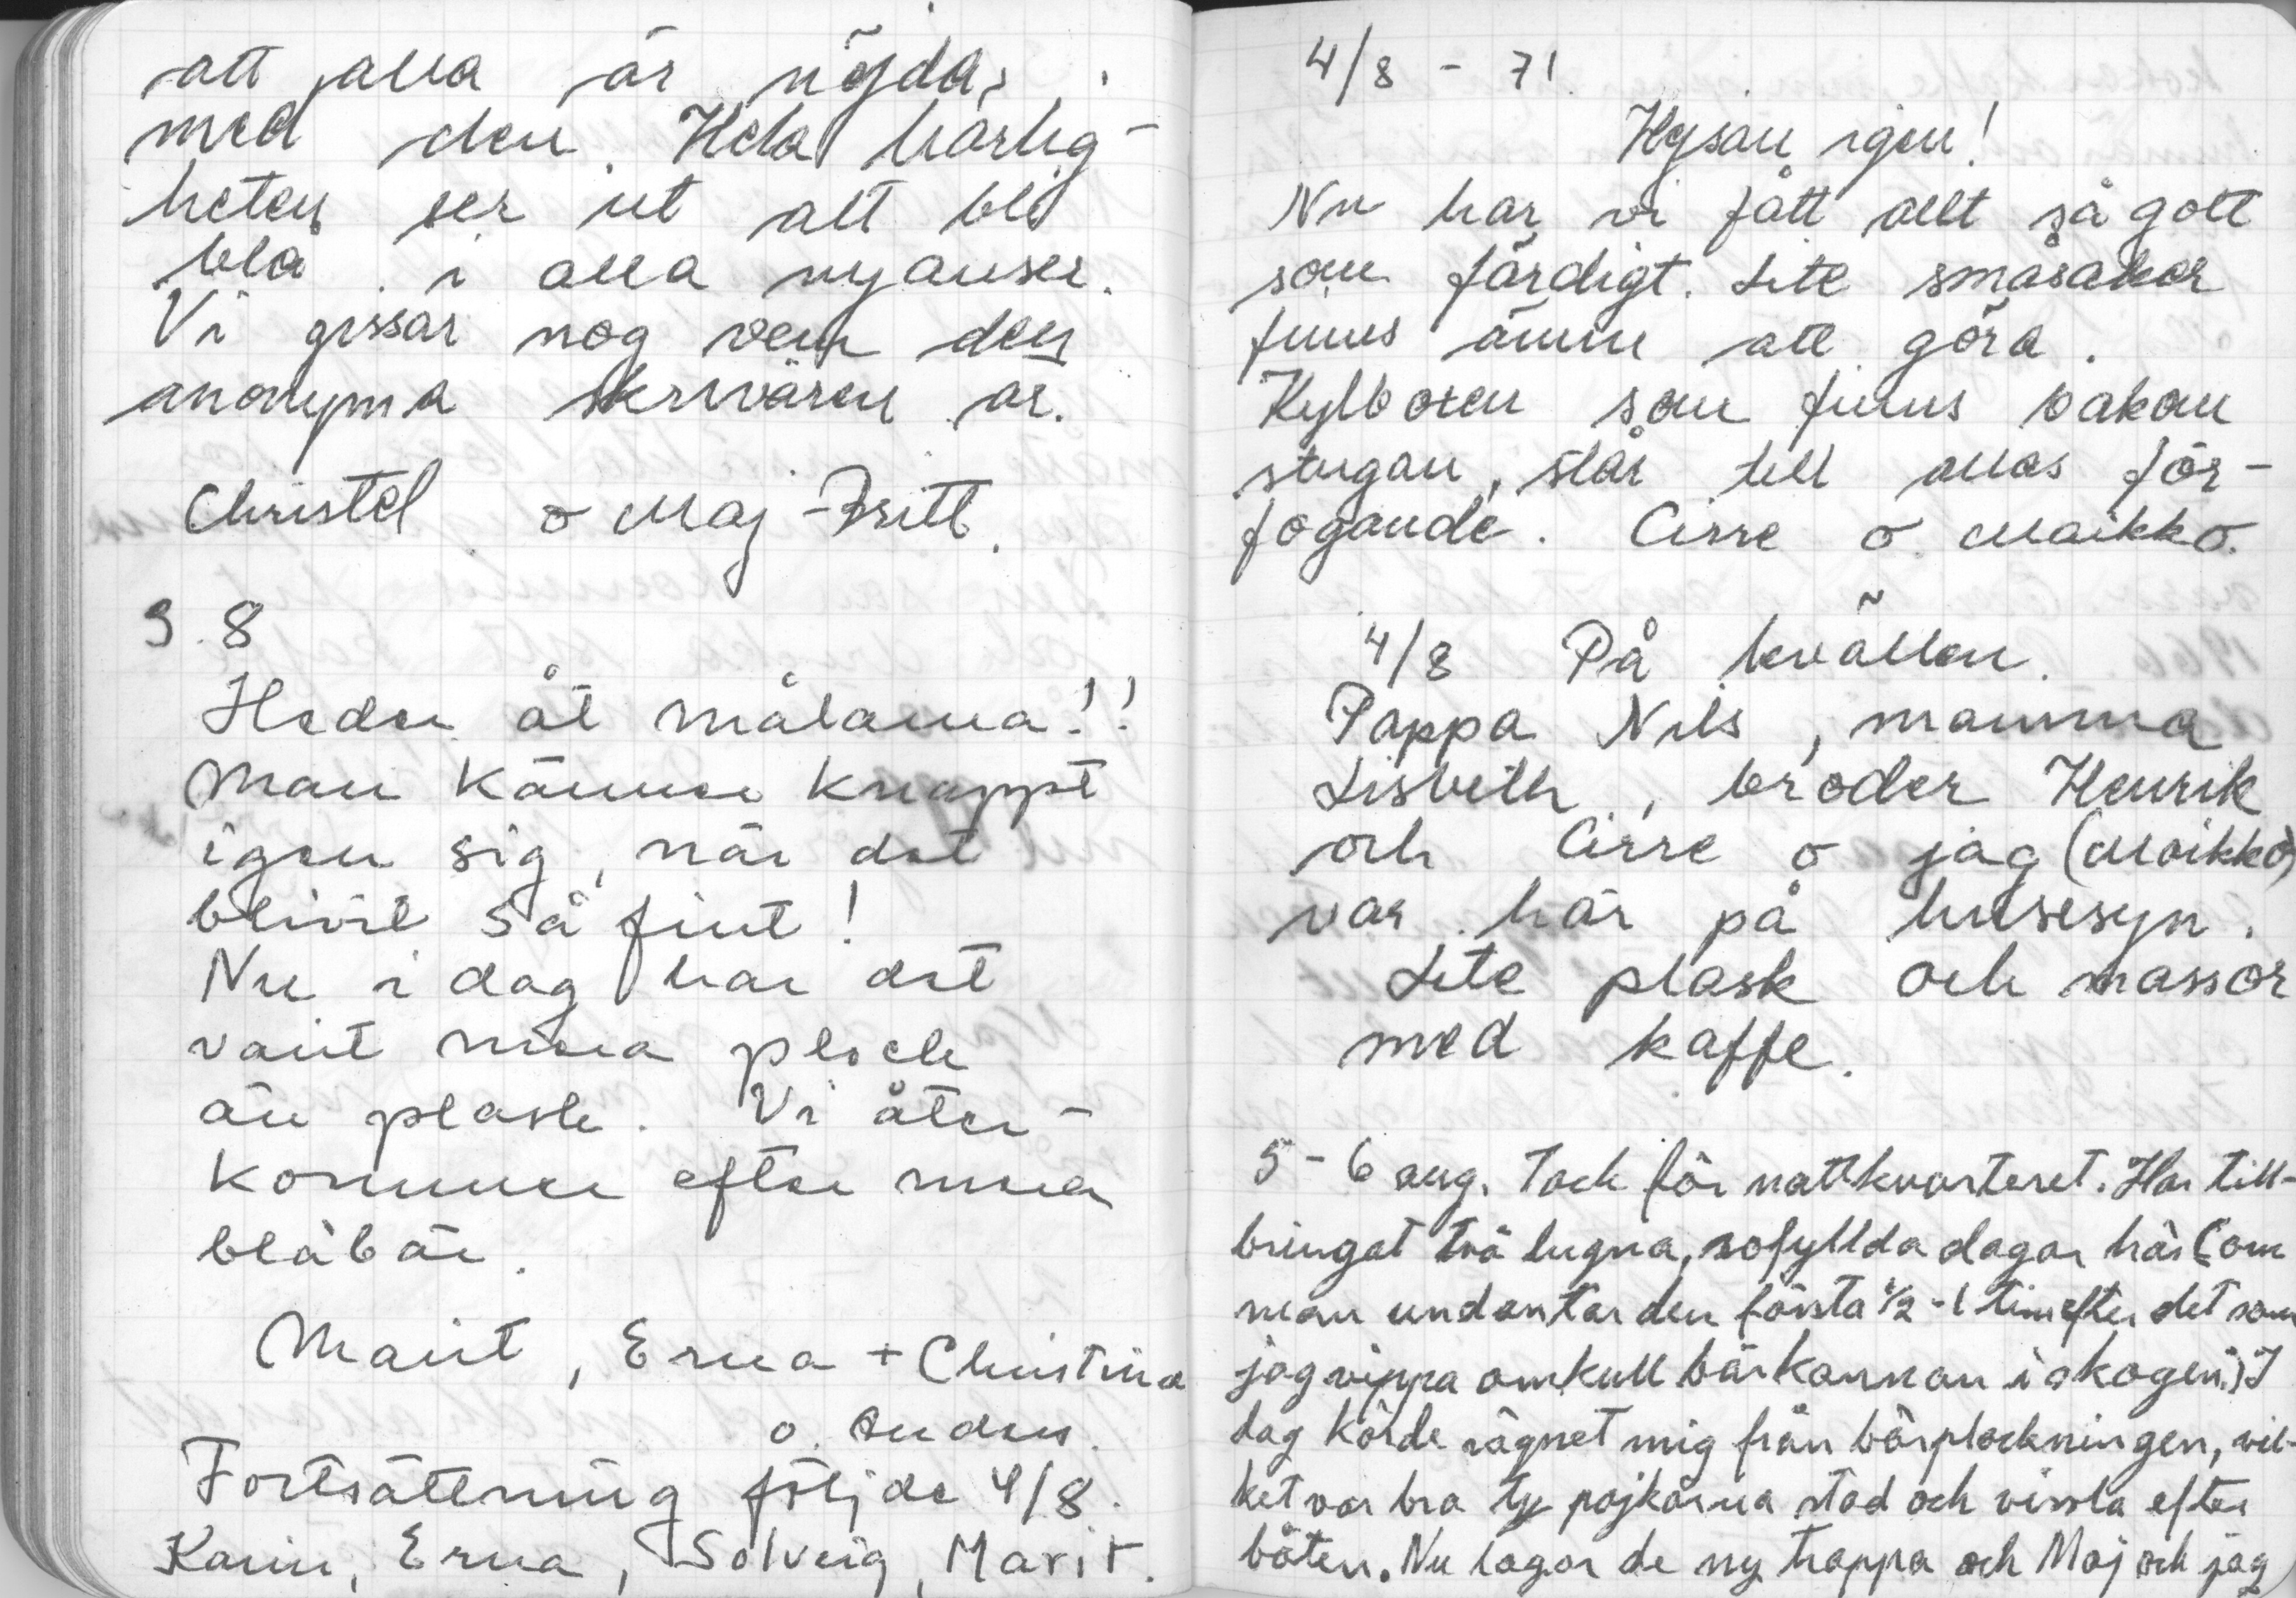 att alla är nöjda
med den. Hela härlig-
heten ser ut att bli
blå i alla nyanser.
Vi gissar nog vem den
anonyma skrivaren är.
Christel o Maj-Britt.
3.8
Heder åt målarna!!
Man känner knappt
igen sig, när det
blivit så fint!
Nu i dag har det
varit mera plock
än plask. Vi åter-
kommer efter mera
blåbär.
Marit, Erna + Christina
o.
Fortsättning följde 4/8.
Karin, Erna, Solveig, Marit.
4/8 - 71
Hejsan igen!
Nu har vi fått allt så gott
som färdigt. Lite småsaker
finns ännu att göra.
Kylboxen som finns bakom
stugan, står till allas för-
fogande. Cirre o Maikko.
4/8 På kvällen.
Pappa Nils, mamma
Lisbeth, broder Henrik
och Cirre o jag (Maikko)
var här på husesyn.
Lite plask och massor
med kaffe.
5-6 aug. Tack för nattkvarteret. Har till-
bringat två lugna, rofyllda dagar här (om
man undantar den första 1/2-1 tim efter det som
jag vippa omkull bärkannan i skogen.) I
dag körde rägnet mig från bärplockningen, vil-
ket var bra ty pojkarna stod och vissla efter
båten. Nu lagar de ny trappa och Maj och jag